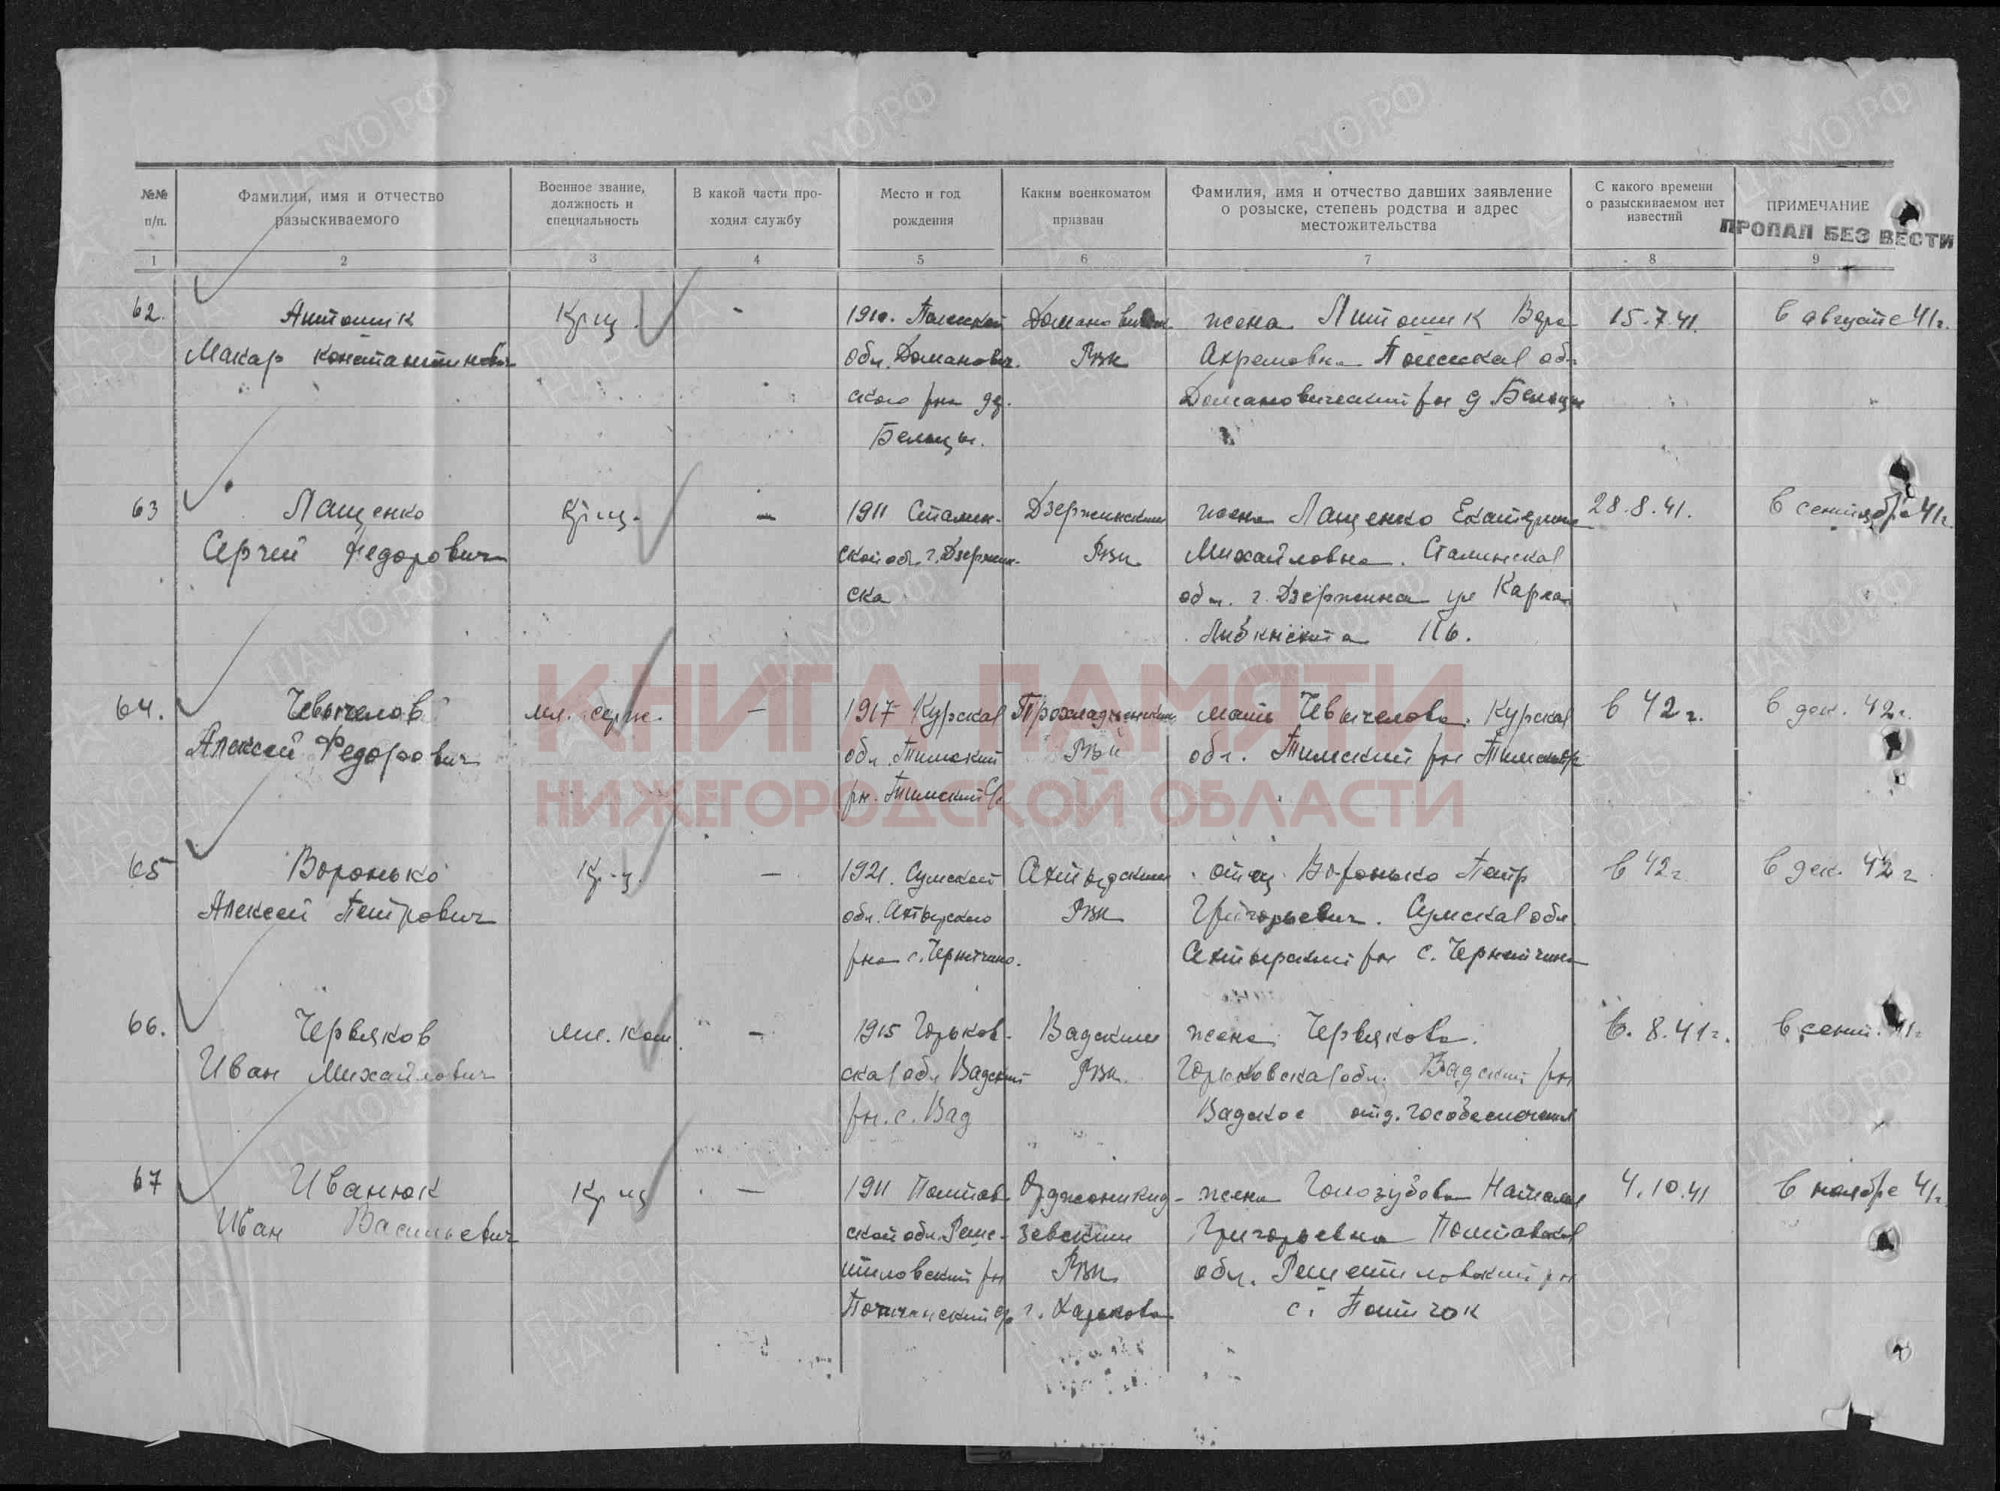 №№ п/п.
Фамилия, имя и отчество разыскиваемого
Военное звание, должность и специальность
В какой части про-
ходил службу
Место и год рождения
Каким военкоматом призван
Фамилия, имя и отчество давших заявление
о розыске, степень родства и адрес
местожительства
С какого времени
о разыскиваемом нет
известий
ПРИМЕЧАНИЕ
ПРОПАЛ БЕЗ ВЕСТИ
1 2 3 4 5 6 7 8 9
62. Антошик
Макар Константинович
Кр-ц.
-
1910. Полесской
обл. Доманович.
ского р-на
Белицы.
РВК
жена Антошик Вера
обл.
Домановический рн д Белицы
15.7.41.
в августе 41г.
63 Лащенко
Сергей Федорович
Кр-ц.
-
1911 Сталин-
ской обл. г. Дзержин-
ска
Дзержинским
РВК
жена Лащенко Екатерина
Михайловна. Сталинская
обл. г. Дзержинск ул Карла
Либкнехта 116.
28.8.41.
в сентябре 41г.
64. Чевычелов
Алексей Федорович
мл. серж.
-
1917 Курская
обл. Тимский
рн. Тимский с/с
РВК
мать Чевычелова. Курская
обл. Тимский рн Тимский
в 42 г.
в дек. 42г.
65 Воронько
Алексей Петрович
Кр-ц.
-
1921. Сумской
обл. Ахтырского
рна с. Чернетчино.
Ахтырским
РВК
отец Воронько Петр
Григорьевич. Сумская обл
Ахтырский рн с. Чернетчина
в 42 г
в дек. 42 г
66. Червяков
Иван Михайлович
мл. ком.
-
1915 Горьков-
ская обл Вадский
рн. с. Вад
Вадским
РВК.
жена Червякова.
Горьковская обл. Вадский рн
Вадское отд. гособеспечения
в. 8.41г.
в сент. 41г
67 Иванюк
Иван Васильевич
Кр-ц
-
1911 Полтав-
ской обл. Реше-
тиловский рн
Орджоникид-
зевским
РВК
г. Харькова
жена Голозубова Наталия
Григорьевна Полтавская
обл. Решетиловский рн
с.
4.10.41
в ноябре 41г
КНИГА ПАМЯТИ
НИЖЕГОРОДСКОЙ ОБЛАСТИ